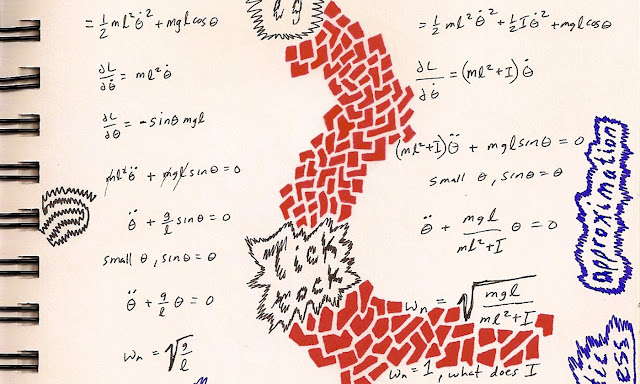 = 1/2 ml²θ̇² + mgl cosθ
∂L/∂θ̇ = ml²θ̇
∂L/∂θ = -sinθ mgl
ml²θ̈ + mgl sinθ = 0
θ̈ + g/l sinθ = 0
small θ, sinθ = θ
θ̈ + g/l θ = 0
ωn = √(g/l)
Tick
Tock
= 1/2 ml²θ̇² + 1/2 Iθ̇² + mgl cosθ
∂L/∂θ̇ = (ml²+I) θ̇
(ml²+I)θ̈ + mgl sinθ = 0
small θ, sinθ = θ
θ̈ + mgl/(ml²+I) θ = 0
ωn = √(mgl/(ml²+I))
ωn = 1, what does I
approximation